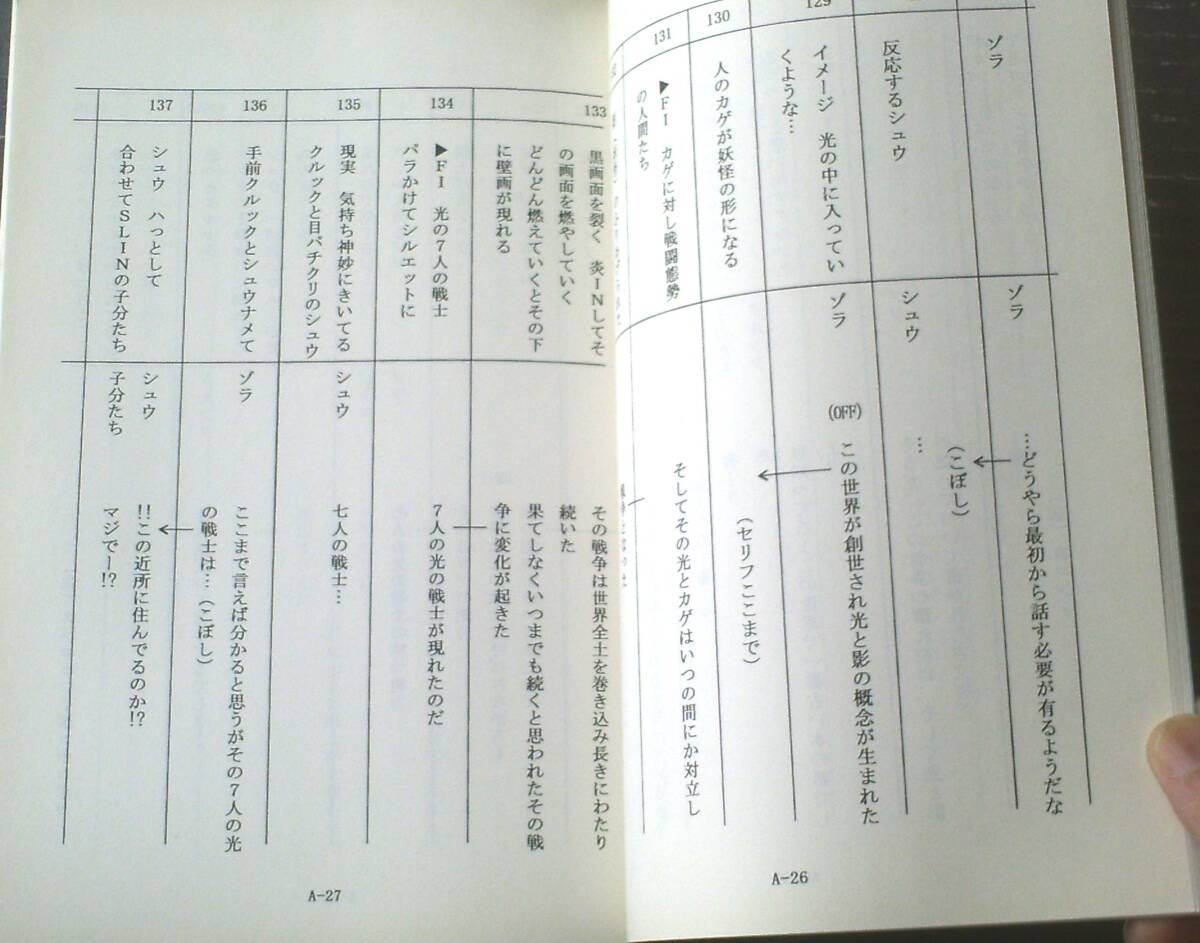 ゾラ
ゾラ
…どうやら最初から話す必要が有るようだな
(こぼし)
反応するシュウ
シュウ
…
129
イメージ 光の中に入ってい
くような…
ゾラ
(OFF) この世界が創世され光と影の概念が生まれた
(セリフここまで)
130
人のカゲが妖怪の形になる
そしてその光とカゲはいつの間にか対立し
131
▶FI カゲに対し戦闘態勢
の人間たち
A-26
133
黒画面を裂く 炎INしてそ
の画面を燃やしていく
どんどん燃えていくとその下
に壁画が現れる
その戦争は世界全土を巻き込み長きにわたり
続いた
果てしなくいつまでも続くと思われたその戦
争に変化が起きた
134
▶FI 光の7人の戦士
パラかけてシルエットに
7人の光の戦士が現れたのだ
135
現実 気持ち神妙にきいてる
クルックと目パチクリのシュウ
シュウ
七人の戦士…
136
手前クルックとシュウナメて
ゾラ
ここまで言えば分かると思うがその7人の光
の戦士は…(こぼし)
137
シュウ ハっとして
合わせてSLINの子分たち
シュウ
子分たち
!!この近所に住んでるのか!?
マジでー!?
A-27